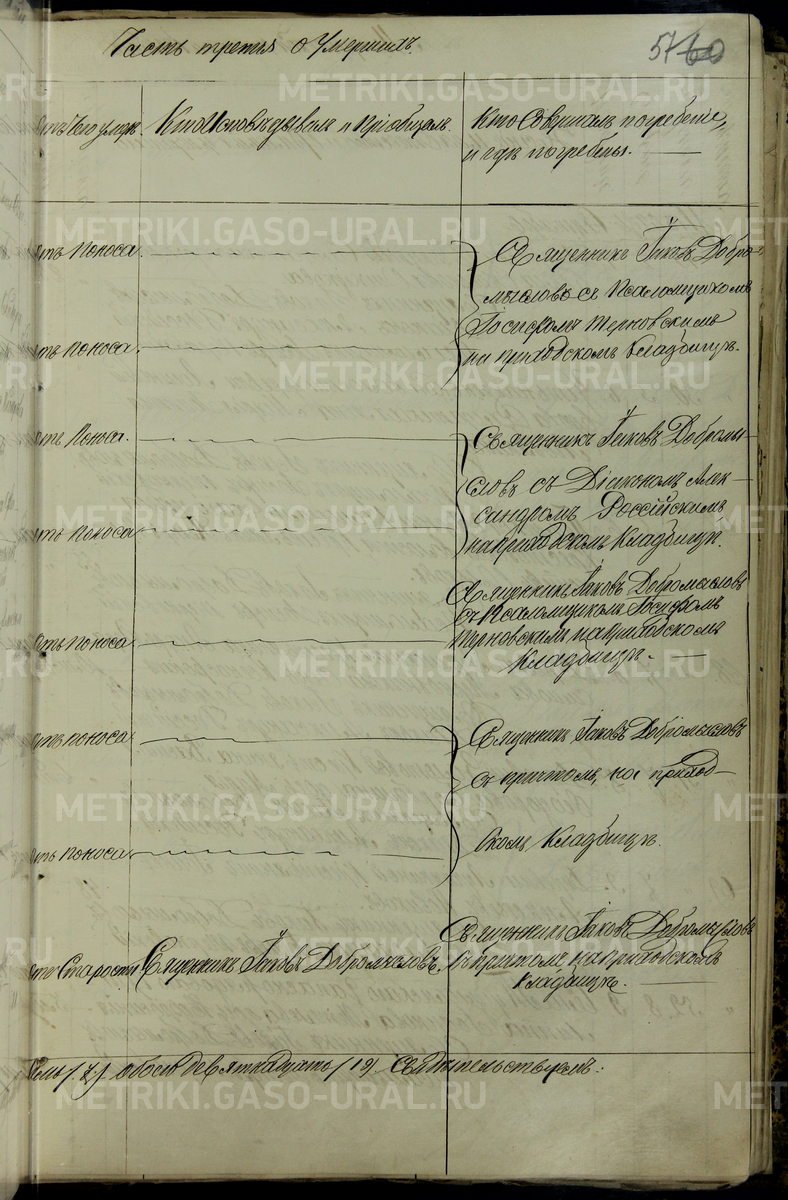 Часть третья о умершихъ.
57 60
Отъ чего умеръ.
Кто исповѣдывалъ и пріобщалъ.
Кто совершалъ погребеніе,
и гдѣ погребены.
Отъ поноса.
Священникъ Іаковъ Добро-
мысловъ съ Псаломщикомъ
Іосифомъ Терновскимъ
Отъ поноса.
на приходскомъ кладбищѣ.
Отъ поноса.
Священникъ Іаковъ Добромы-
словъ съ Діакономъ Алек-
сандромъ Россійскимъ
Отъ поноса
на приходскомъ кладбищѣ.
Священникъ Іаковъ Добромысловъ
съ Псаломщикомъ Іосифомъ
Отъ поноса
Терновскимъ на приходскомъ
кладбищѣ.
Отъ поноса
Священникъ Іаковъ Добромысловъ
съ причтомъ, на приход-
Отъ поноса
скомъ кладбищѣ.
Отъ старости
Священникъ Іаковъ Добромысловъ.
Священникъ Іаковъ Добромысловъ
съ причтомъ на приходскомъ
кладбищѣ.
/7/ обоего девятнадцать /19/ свидѣтельствуемъ:
METRIKI.GASO-URAL.RU